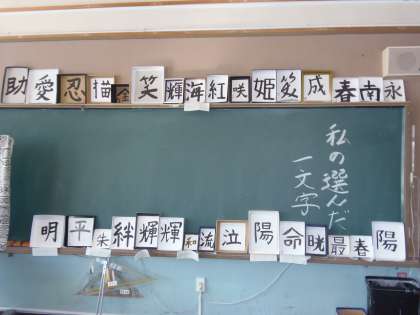 助 愛 忍 描 笑 輝 海 紅 咲 姫 笑 成 春 南 永
私の選んだ
一文字
明 平 朱 絆 輝 輝 和 流 泣 陽 命 晄 最 春 陽